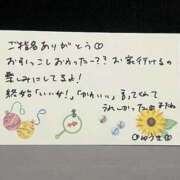 ご指名ありがとう
おすしっこしおわったー?? お家行けるの
楽しみにしてるよ!
終始「いい女!」「かわいい」言ってくれて
うれしかった
ゆうき